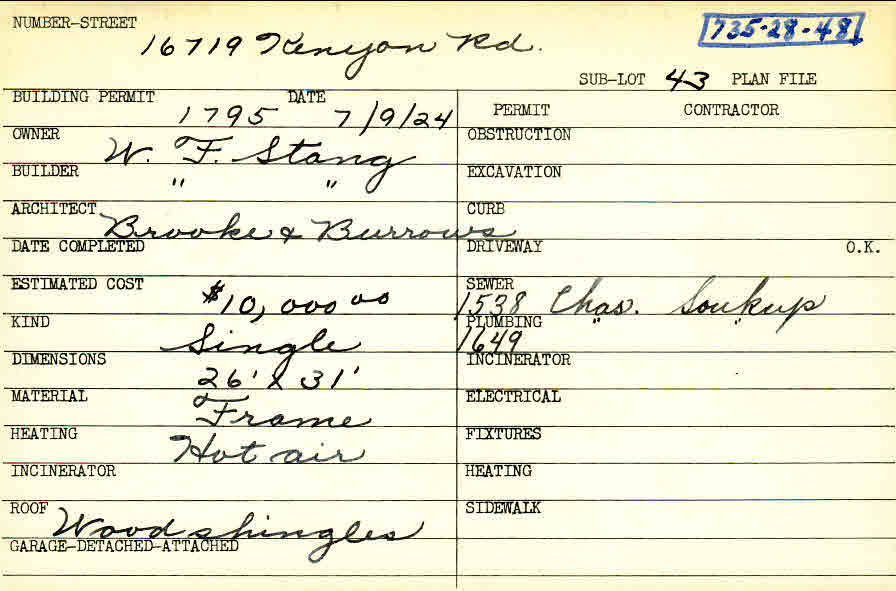 NUMBER-STREET
16719 Kenyon Rd.
735-28-48
SUB-LOT 43 PLAN FILE
BUILDING PERMIT 1795 DATE 7/9/24
OWNER W. F. Stang
BUILDER " "
ARCHITECT Brooke & Burrows
DATE COMPLETED
ESTIMATED COST $10,000 00
KIND Single
DIMENSIONS 26' x 31'
MATERIAL Frame
HEATING Hot air
INCINERATOR
ROOF Wood shingles
GARAGE-DETACHED-ATTACHED
PERMIT CONTRACTOR
OBSTRUCTION
EXCAVATION
CURB
DRIVEWAY O.K.
SEWER
1538 Chas. Soukup
PLUMBING " "
1649
INCINERATOR
ELECTRICAL
FIXTURES
HEATING
SIDEWALK